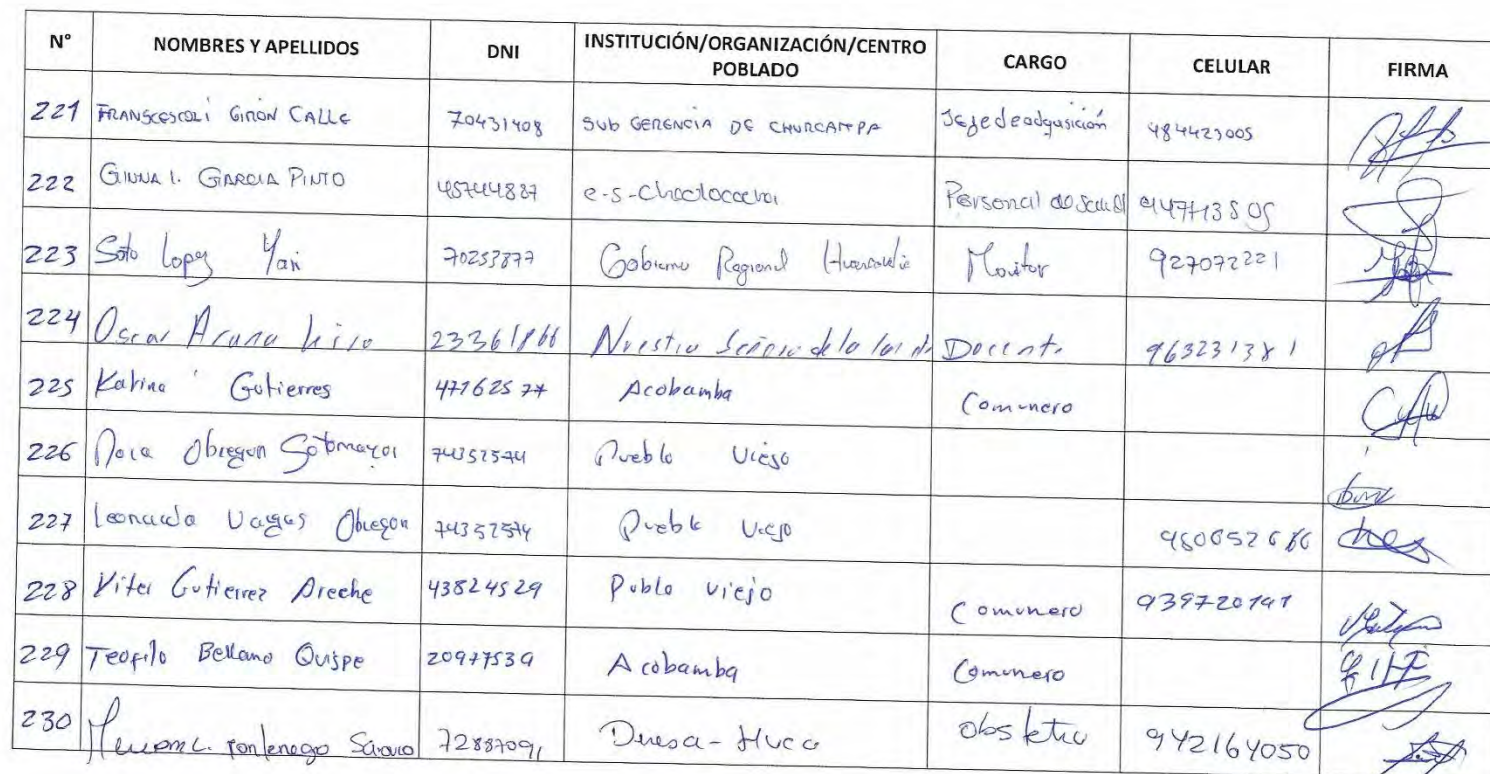 N° NOMBRES Y APELLIDOS DNI INSTITUCIÓN/ORGANIZACIÓN/CENTRO POBLADO CARGO CELULAR FIRMA
221 FRANSCESCOLI GIRÓN CALLE 70431408 SUB GERENCIA DE CHURCAMPA Jefe de adqusición 984423005
222 GINNA I. GARCIA PINTO 45744887 e-s-Choclococha Personal de Salud 947713505
223 Soto Lopez Yan 70253877 Gobierno Regional Monitor 927072221
224 Oscar Acuna 23361866 Nuestra Señora de la Docente 963231381
225 Karina Gutierres 47162577 Acobamba Comunero
226 Obregon Sotomayor 74352574 Pueblo Viejo
227 Leonarda Vargas Obregon 74352574 Pueblo Viejo 980652686
228 Viter Gutierrez Areche 43824529 Poblo viejo Comunero 939720191
229 Teofilo Bellano Quispe 20977539 Acobamba Comunero
230 72887091 Diresa-Huca Obstetra 942164050